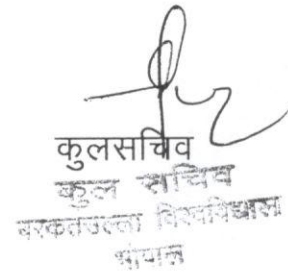 कुलसचिव
कुल सचिव
बरकतउल्ला विश्वविद्यालय
भोपाल